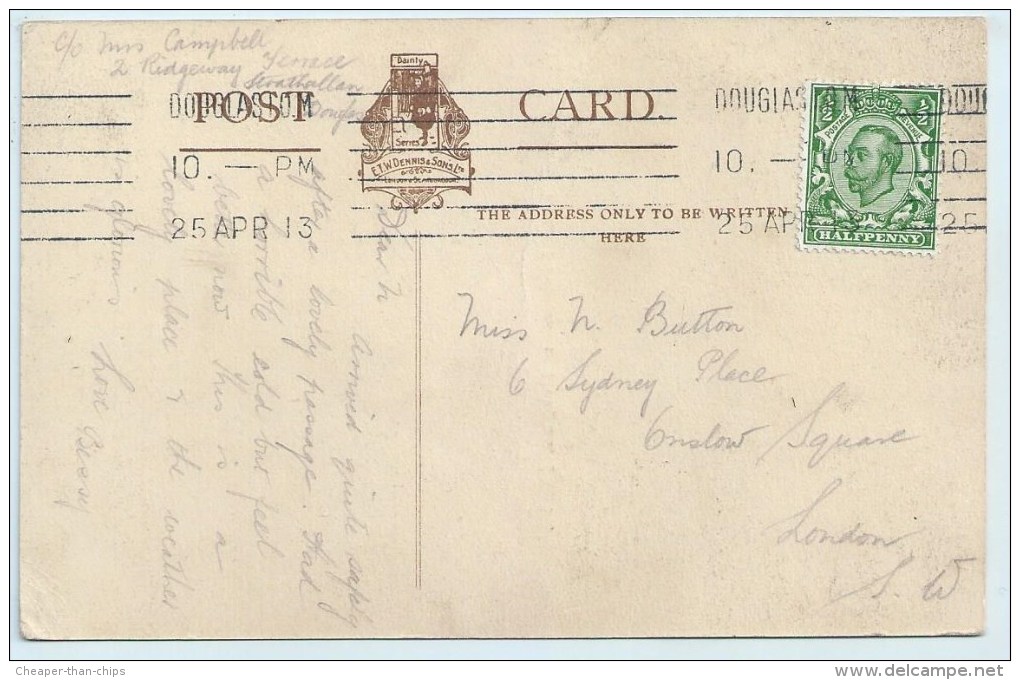 c/o Mrs Campbell
2 Ridgeway Terrace
Strathallan
Douglas
POST CARD.
Dainty
Series
E.T.W. DENNIS & SONS LTD
DOUGLAS I.O.M
10. — PM
25 APR 13
DOUGLAS I.O.M
10. — PM
25 APR 13
DOUG
10.
25
½ ½
POSTAGE REVENUE
HALFPENNY
THE ADDRESS ONLY TO BE WRITTEN
HERE
Dear N
Arrived quite safely
after a lovely passage. Had
a horrible cold but feel
now This is a
lovely place & the weather
glorious Love Bessy
Miss N. Button
6 Sydney Place
Onslow Square
London
S. W
Cheaper-than-chips
delcampe.net